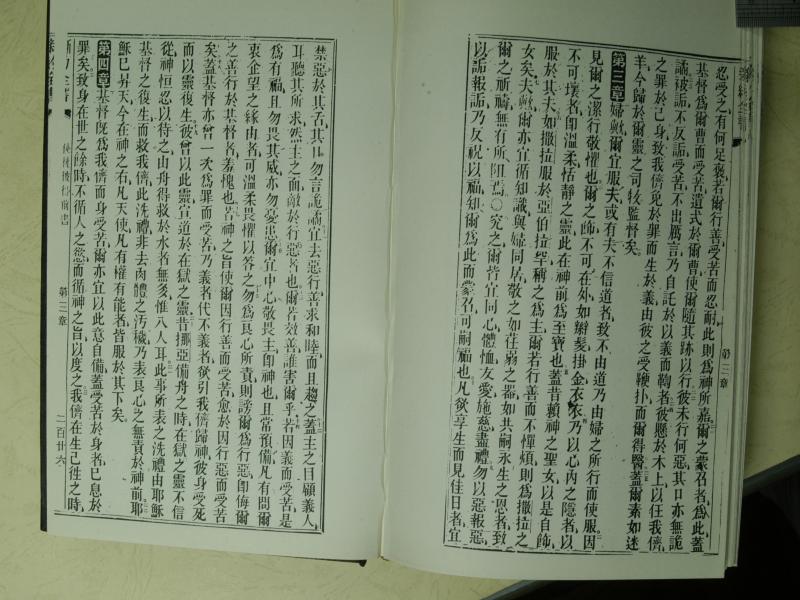 忍受之有何足褒若爾行善受苦而忍耐此則爲神所嘉爾之蒙召者爲此蓋
基督爲爾曹而受苦遺式於爾曹使爾隨其跡以行彼未行何惡其口亦無詭
譎被詬不反詬受苦不出厲言乃自託於以義而鞫者彼懸於木上以任我儕
之罪於己身致我儕免於罪而生於義由彼之受鞭扑而爾得醫蓋爾素如迷
羊今歸於爾靈之司牧監督矣
第三章婦歟爾宜服夫或有夫不信道者致不由道乃由婦之所行而使服因
見爾之潔行敬懼也爾之飾不可在外如辮髮掛金衣衣乃以心內之隱者以
不可壞者卽溫柔恬靜之靈此在神前爲至寶也蓋昔賴神之聖女以是自飾
服於其夫如撒拉服於亞伯拉罕稱之爲主爾若行善而不憚煩則爲撒拉之
女矣夫歟爾亦宜循知識與婦同居敬之如荏弱之器如共嗣永生之恩者致
爾之祈禱無有所阻焉〇究之爾皆宜同心體恤友愛施慈盡禮勿以惡報惡
以詬報詬乃反祝以福知爾爲此而蒙召可嗣福也凡欲享生而見佳日者宜
第三章
禁惡於其舌其口勿言詭譎宜去惡行善求和睦而且趨之蓋主之目顧義人
耳聽其所求然主之面敵於行惡者也爾若效善誰害爾乎若因義而受苦是
爲有福且勿畏其威亦勿憂患爾宜中心敬畏主卽神也且常預備凡有問爾
衷企望之緣由者可溫柔畏懼以答之勿爲良心所責則謗爾爲行惡卽侮爾
之善行於基督者羞愧也若神之旨使爾因行善而受苦愈於因行惡而受苦
矣蓋基督亦曾一次爲罪而受苦乃義者代不義者欲引我儕歸神彼身受死
而以靈復生彼曾以此靈宣道於在獄之靈昔挪亞備舟之時在獄之靈不信
從神恒忍以待之由舟得救於水者無多惟八人耳此事所表之洗禮由耶穌
基督之復生而救我儕此洗禮非去肉體之汚穢乃表良心之無責於神前耶
穌已昇天今在神之右凡天使凡有權有能者皆服於其下矣
第四章基督旣爲我儕而身受苦爾亦宜以此意自備蓋受苦於身者已息於
罪矣致身在世之餘時不循人之慾而循神之旨以度之我儕在生已往之時
第三章
二百廿六